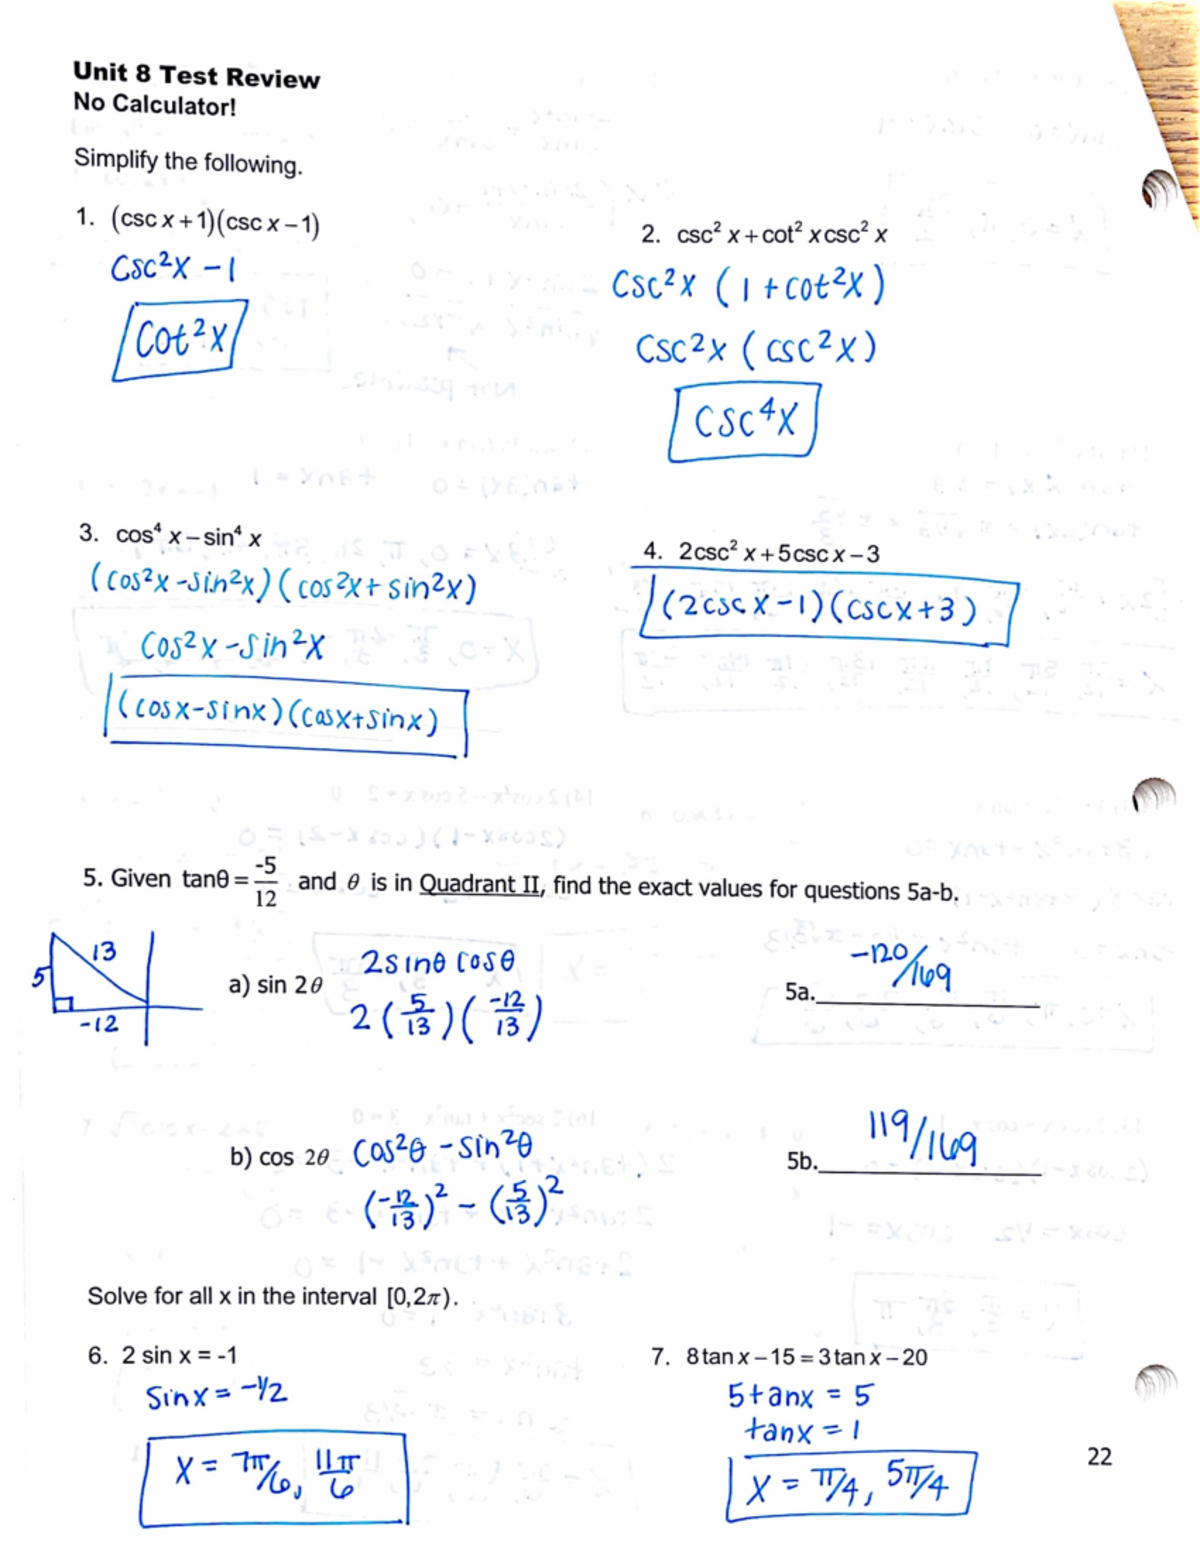 Unit 8 Test Review
No Calculator!
Simplify the following.
1. (csc x + 1)(csc x – 1)
csc²x – 1
cot²x
2. csc² x + cot² x csc² x
csc²x (1 + cot²x)
csc²x (csc²x)
csc⁴x
3. cos⁴ x – sin⁴ x
(cos²x – sin²x)(cos²x + sin²x)
cos²x – sin²x
(cosx – sinx)(cosx + sinx)
4. 2csc² x + 5csc x – 3
(2cscx – 1)(cscx + 3)
5. Given tanθ = -5/12 and θ is in Quadrant II, find the exact values for questions 5a-b.
13
5
-12
a) sin 2θ
2sinθ cosθ
2(5/13)(-12/13)
5a. -120/169
b) cos 2θ cos²θ – sin²θ
(-12/13)² – (5/13)²
5b. 119/169
Solve for all x in the interval [0,2π).
6. 2 sin x = -1
sinx = -1/2
x = 7π/6, 11π/6
7. 8tan x – 15 = 3tan x – 20
5tanx = 5
tanx = 1
x = π/4, 5π/4
22